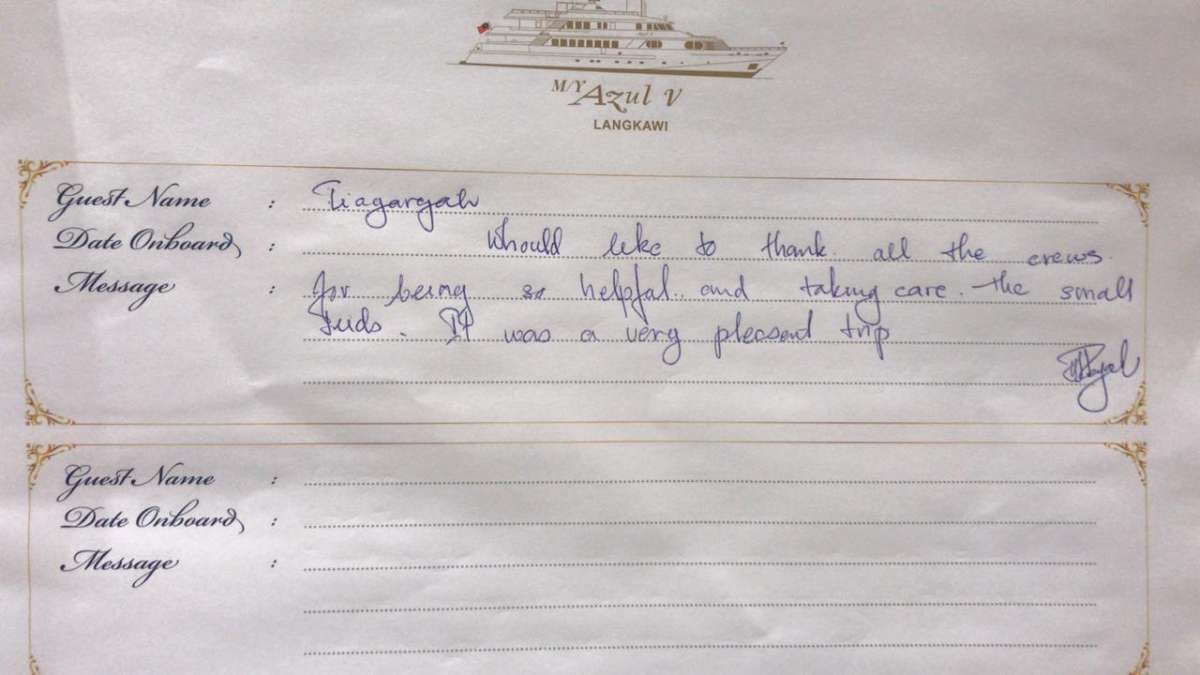 M/Y Azul V
LANGKAWI
Guest Name : Tiagarajah
Date Onboard : Whould like to thank all the crews.
Message : for being so helpful.. and taking care. the small
It was a very pleasend trip
Guest Name :
Date Onboard :
Message :